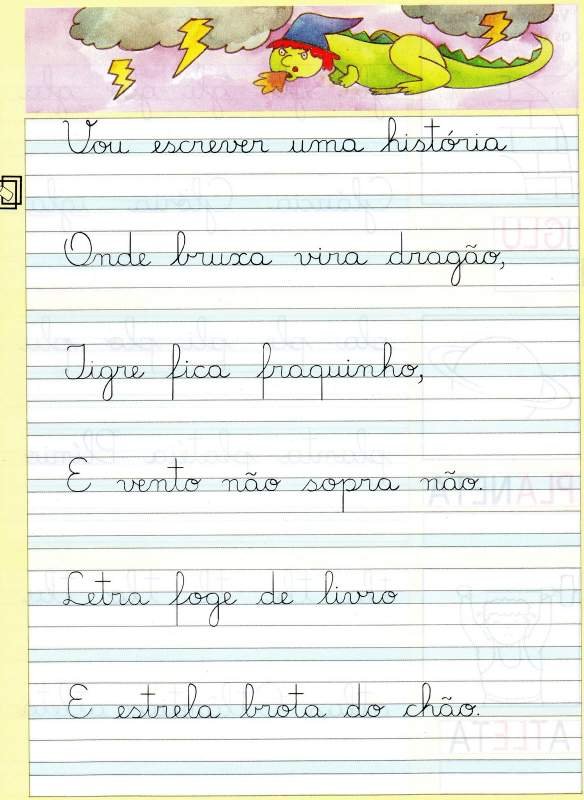 Vou escrever uma história
Onde bruxa vira dragão,
Tigre fica fraquinho,
E vento não sopra não.
Letra foge de livro
E estrela brota do chão.
IGLU
PLANETA
ATLETA